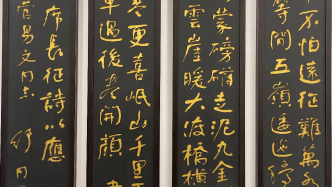 不怕遠征難萬水
等閒五嶺逶迤騰
蒙磅礴走泥丸金
雲崖暖大渡橋橫
寒更喜岷山千里
軍過後盡開顏
席長征詩以應
管易文同志 舒同